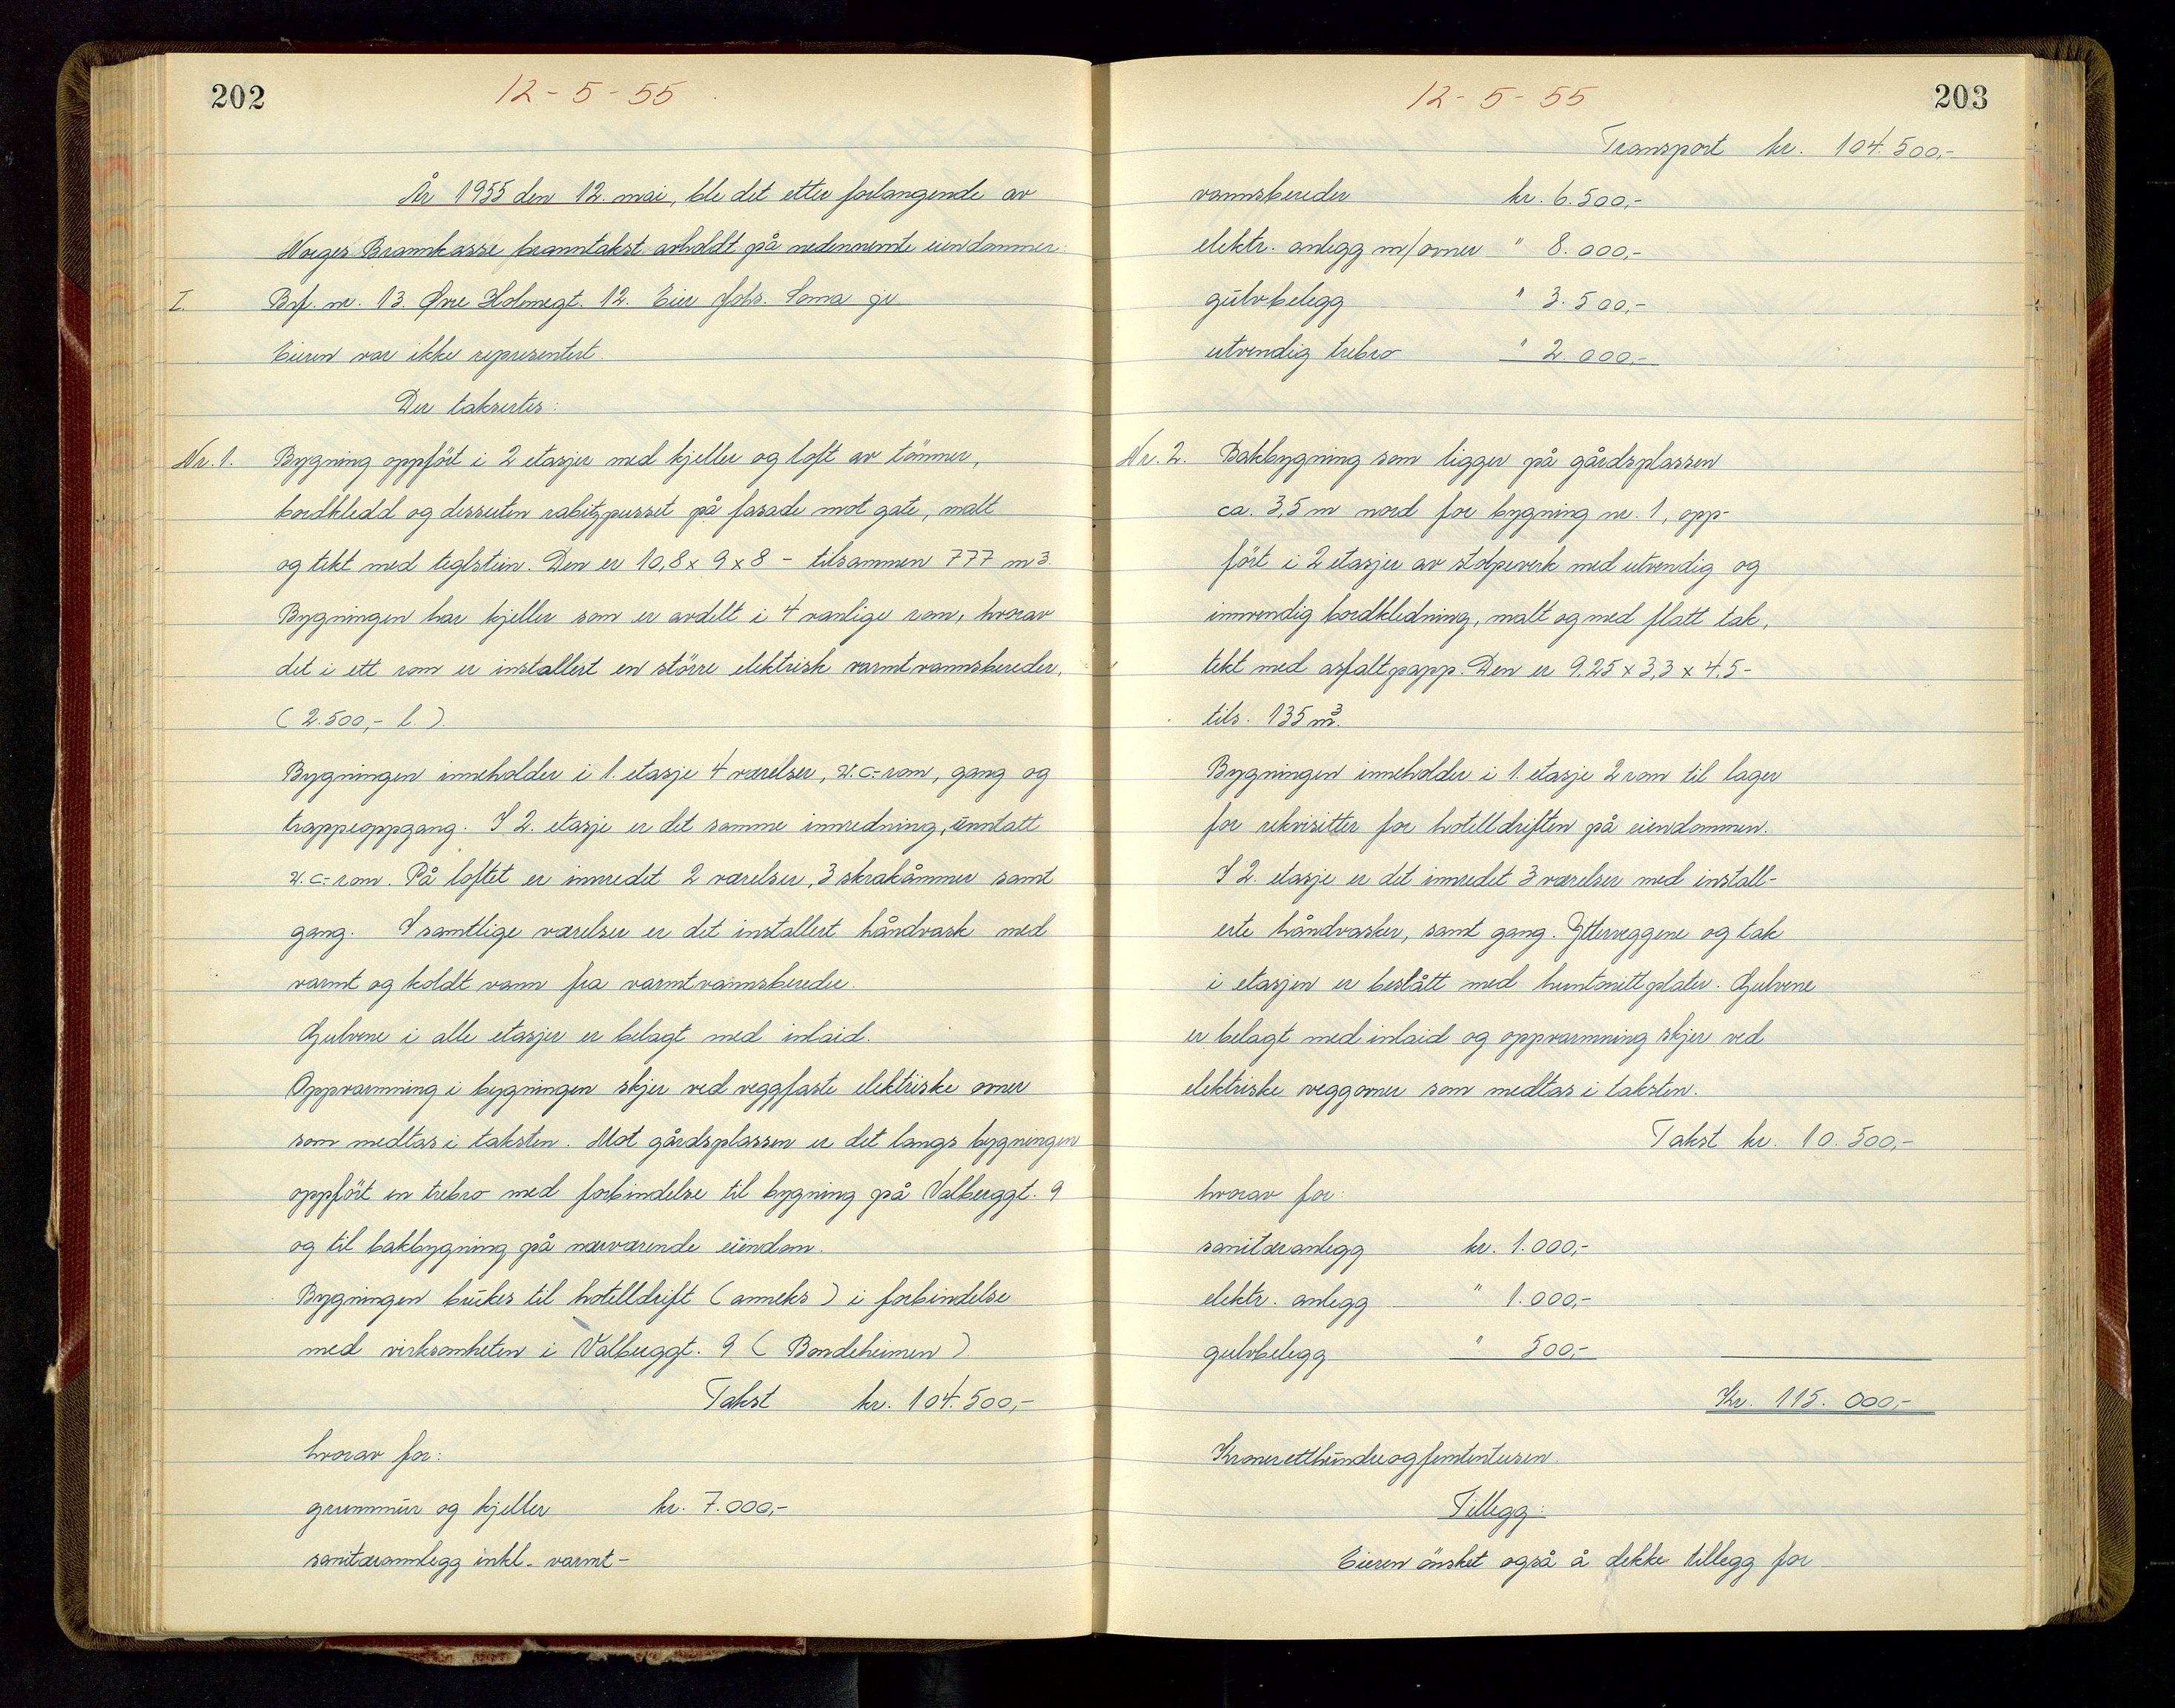 202
12-5-55
År 1955 den 12. mai, ble det etter forlangende av
Norges Brannkasse branntakst avholdt på nedennevnte eiendommer:
I. Brf. nr. 13. Øvre Holmegt. 12. Eier Johs. Soma jr.
Eieren var ikke representert.
Der taksertes:
Nr. 1. Bygning oppført i 2 etasjer med kjeller og loft av tømmer,
bordkledd og dessuten rabitzpusset på fasade mot gate, malt
og tekt med teglstein. Den er 10,8 x 9 x 8 - tilsammen 777 m3.
Bygningen har kjeller som er avdelt i 4 vanlige rom, hvorav
det i ett rom er installert en større elektrisk varmtvannsbereder,
(2.500,- l.).
Bygningen inneholder i 1. etasje 4 værelser, w.c.-rom, gang og
trappeoppgang. I 2. etasje er det samme innredning, unntatt
w.c-rom. På loftet er innredet 2 værelser, 3 skrakåmmer samt
gang. I samtlige værelser er det installert håndvask med
varmt og koldt vann fra varmtvannsbereder.
Gulvene i alle etasjer er belagt med inlaid.
Oppvarmning i bygningen skjer ved veggfaste elektriske ovner
som medtas i taksten. Mot gårdsplassen er det langs bygningen
oppført en trebro med forbindelse til bygning på Valberggt. 9
og til bakbygning på nærværende eiendom.
Bygningen brukes til hotelldrift (anneks) i forbindelse
med virksomheten i Valberggt. 9 (Bondeheimen)
Takst kr. 104.500,-
hvorav for:
grunnmur og kjeller kr. 7.000,-
sanitæranlegg inkl. varmt-
203
12-5-55
Transport kr. 104.500,-
vannsbereder kr. 6.500,-
elektr. anlegg m/ovner " 8.000,-
gulvbelegg " 3.500,-
utvendig trebro " 2.000,-
Nr. 2. Bakbygning som ligger på gårdsplassen
ca. 3,5 m nord for bygning nr. 1, opp-
ført i 2 etasjer av stolpeverk med utvendig og
innvendig bordkledning, malt og med flatt tak,
tekt med asfaltpapp. Den er 9,25 x 3,3 x 4,5 -
tils. 135 m3.
Bygningen inneholder i 1. etasje 2 rom til lager
for rekvisitter for hotelldriften på eiendommen.
I 2. etasje er det innredet 3 værelser med install-
erte håndvasker, samt gang. Ytterveggene og tak
i etasjen er beslått med huntonittplater. Gulvene
er belagt med inlaid og oppvarmning skjer ved
elektriske veggovner som medtas i taksten.
Takst kr. 10.500,-
hvorav for:
sanitæranlegg kr. 1.000,-
elektr. anlegg " 1.000,-
gulvbelegg " 500,-
Kr. 115.000,-
Kroneretthundreogfemtentusen.
Tillegg:
Eieren ønsket også å dekke tillegg for